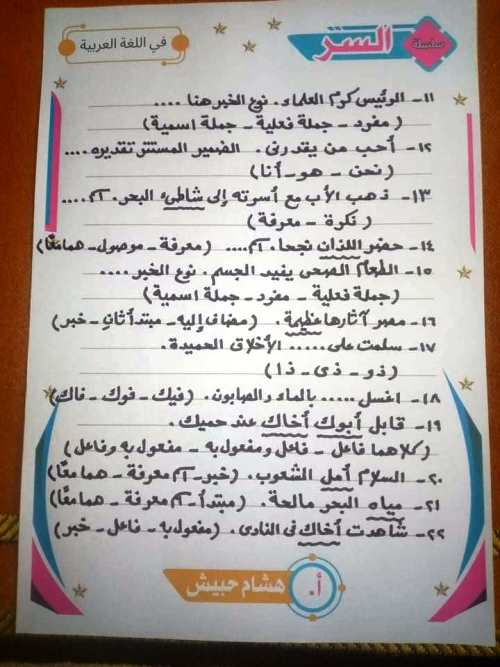 سلسلة
السنتر
في اللغة العربية
١١- الرئيس كرم العلماء. نوع الخبر هنا ....
( مفرد - جملة فعلية - جملة اسمية )
١٢- أحب من يقدرني. الضمير المستتر تقديره ....
( نحن - هو - أنا )
١٣- ذهب الأب مع أسرته إلى شاطئ البحر. اسم ....
( نكرة - معرفة )
١٤- حضر اللذان نجحا. اسم .... ( معرفة - موصول - هما معًا )
١٥- الطعام الصحى يفيد الجسم. نوع الخبر ....
( جملة فعلية - مفرد - جملة اسمية )
١٦- مصر آثارها عظيمة. ( مضاف إليه - مبتدأ ثانٍ - خبر )
١٧- سلمت على ..... الأخلاق الحميدة.
( ذو - ذى - ذا )
١٨- اغسل ..... بالماء والصابون. ( فيك - فوك - فاك )
١٩- قابل أبوك أخاك عند حميك.
( كلاهما فاعل - فاعل ومفعول به - مفعول به وفاعل )
٢٠- السلام أمل الشعوب. ( خبر - اسم معرفة - هما معًا )
٢١- مياه البحر مالحة. ( مبتدأ - اسم معرفة - هما معًا )
٢٢- شاهدت أخاك فى النادى. ( مفعول به - فاعل - خبر )
أ. هشام حبيش